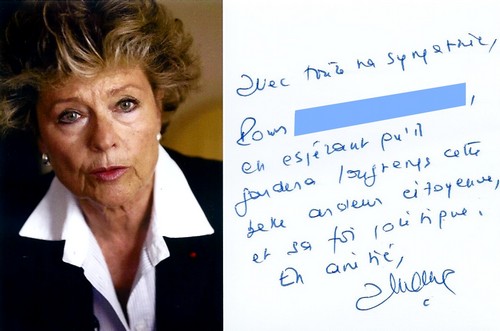 avec toute ma sympathie,
Pour ,
en espérant qu'il
gardera longtemps cette
belle ardeur citoyenne,
et sa foi politique.
En amitié,